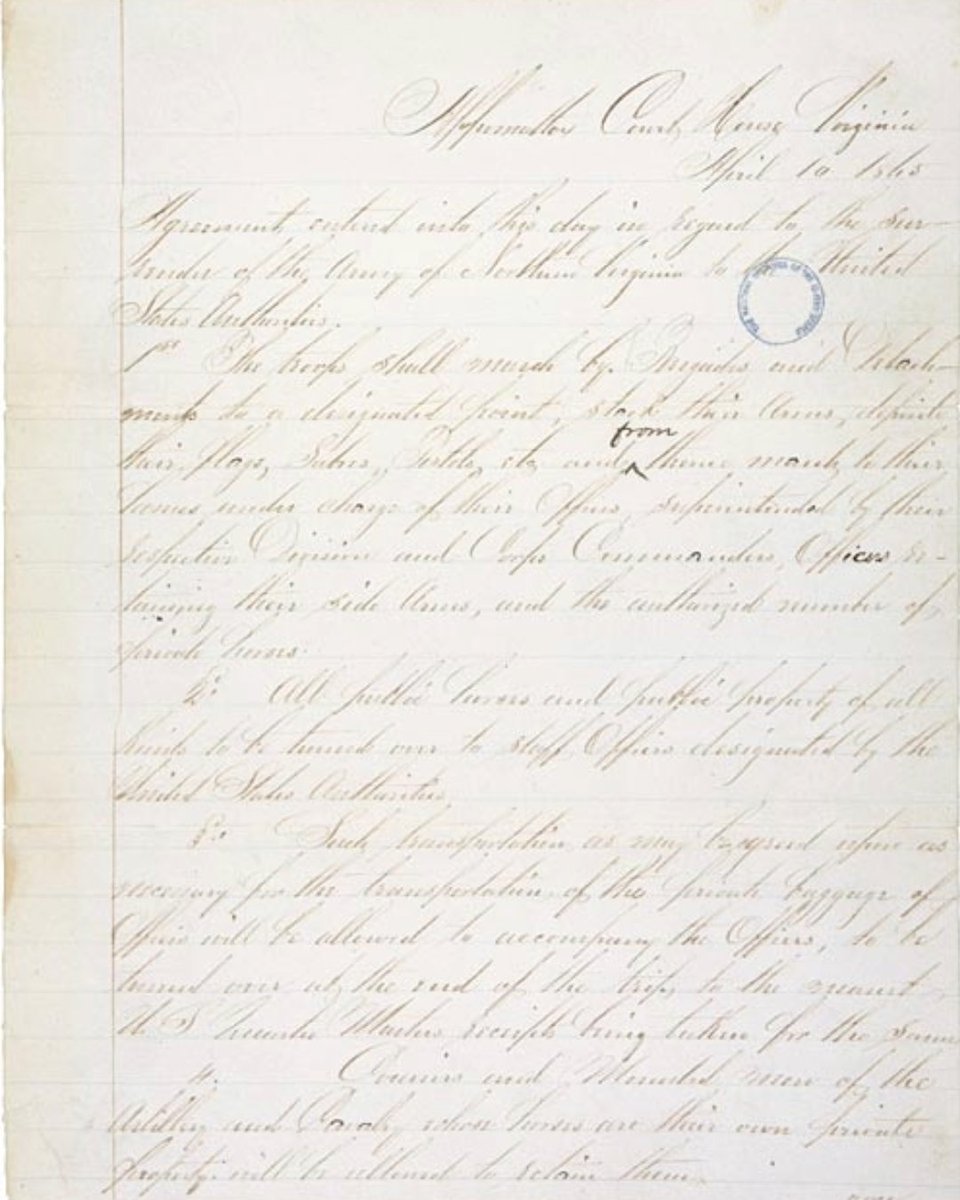 Appomattox Court House Virginia
April 10 1865
Agreement entered into this day in regard to the sur-
render of the Army of Northern Virginia to the United
States Authorities.
1st The troops shall march by Brigades and Detach-
ments to a designated point, stack their Arms, deposite
from
their flags, Sabres, Pistols, etc and thence march to their
homes under charge of their Officers, superintended by their
respective Division and Corps Commanders, Officers re-
taining their side Arms, and the authorized number of
private horses.
2. All public horses and public property of all
kinds to be turned over to staff Officers designated by the
United States Authorities.
3. Such transportation as may be agreed upon as
necessary for the transportation of the private baggage of
Officers will be allowed to accompany the Officers, to be
turned over at the end of the trip to the nearest
U S Quarter Masters, receipts being taken for the same
4. Couriers and Mounted men of the
Artillery and Cavalry whose horses are their own private
property will be allowed to retain them.